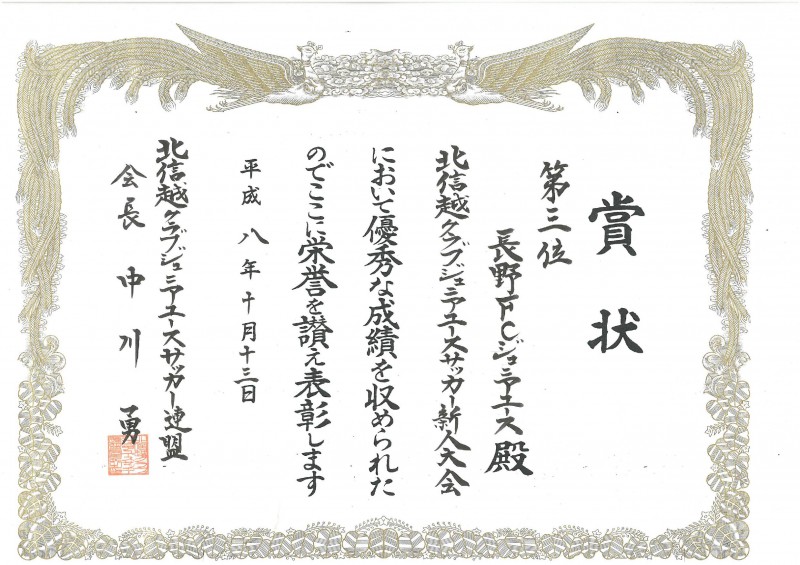 賞状
第三位
長野FCジュニアユース殿
北信越クラブジュニアユースサッカー新人大会
において優秀な成績を収められた
のでここに栄誉を讃え表彰します
平成八年十月十三日
北信越クラブジュニアユースサッカー連盟
会長 中川 勇